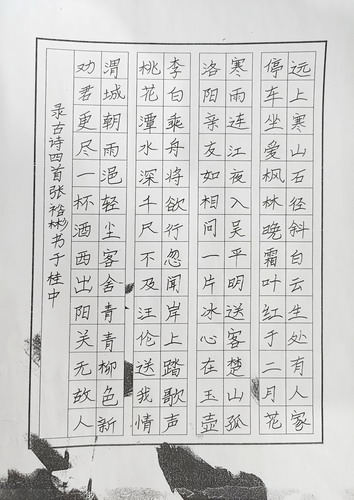 远上寒山石径斜白云生处有人家
停车坐爱枫林晚霜叶红于二月花
寒雨连江夜入吴平明送客楚山孤
洛阳亲友如相问一片冰心在玉壶
李白乘舟将欲行忽闻岸上踏歌声
桃花潭水深千尺不及汪伦送我情
渭城朝雨浥轻尘客舍青青柳色新
劝君更尽一杯酒西出阳关无故人
录古诗四首张裕彬书于桂中